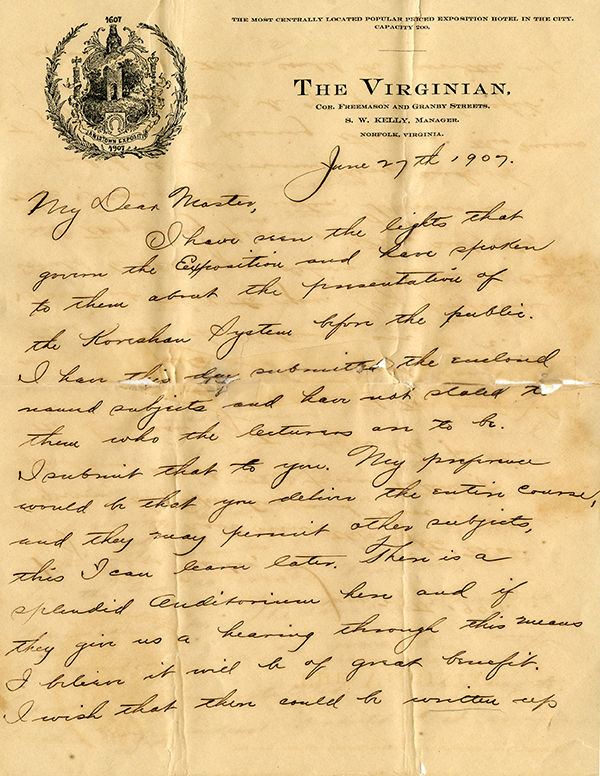 1607
JAMESTOWN EXPOSITION
1907
THE MOST CENTRALLY LOCATED POPULAR PRICED EXPOSITION HOTEL IN THE CITY.
CAPACITY 200.
THE VIRGINIAN,
COR. FREEMASON AND GRANBY STREETS,
S. W. KELLY, MANAGER.
NORFOLK, VIRGINIA.
June 27th 1907.
My Dear Master,
I have seen the lights that
govern the Exposition and have spoken
to them about the presentation of
the Koreshan System before the public.
I have this day submitted the enclosed
named subjects and have not stated to
them who the lecturers are to be.
I submit that to you. My preference
would be that you deliver the entire course,
and they may permit other subjects,
this I can learn later. There is a
splendid Auditorium here and if
they give us a hearing through this means
I believe it will be of great benefit.
I wish that there could be written up